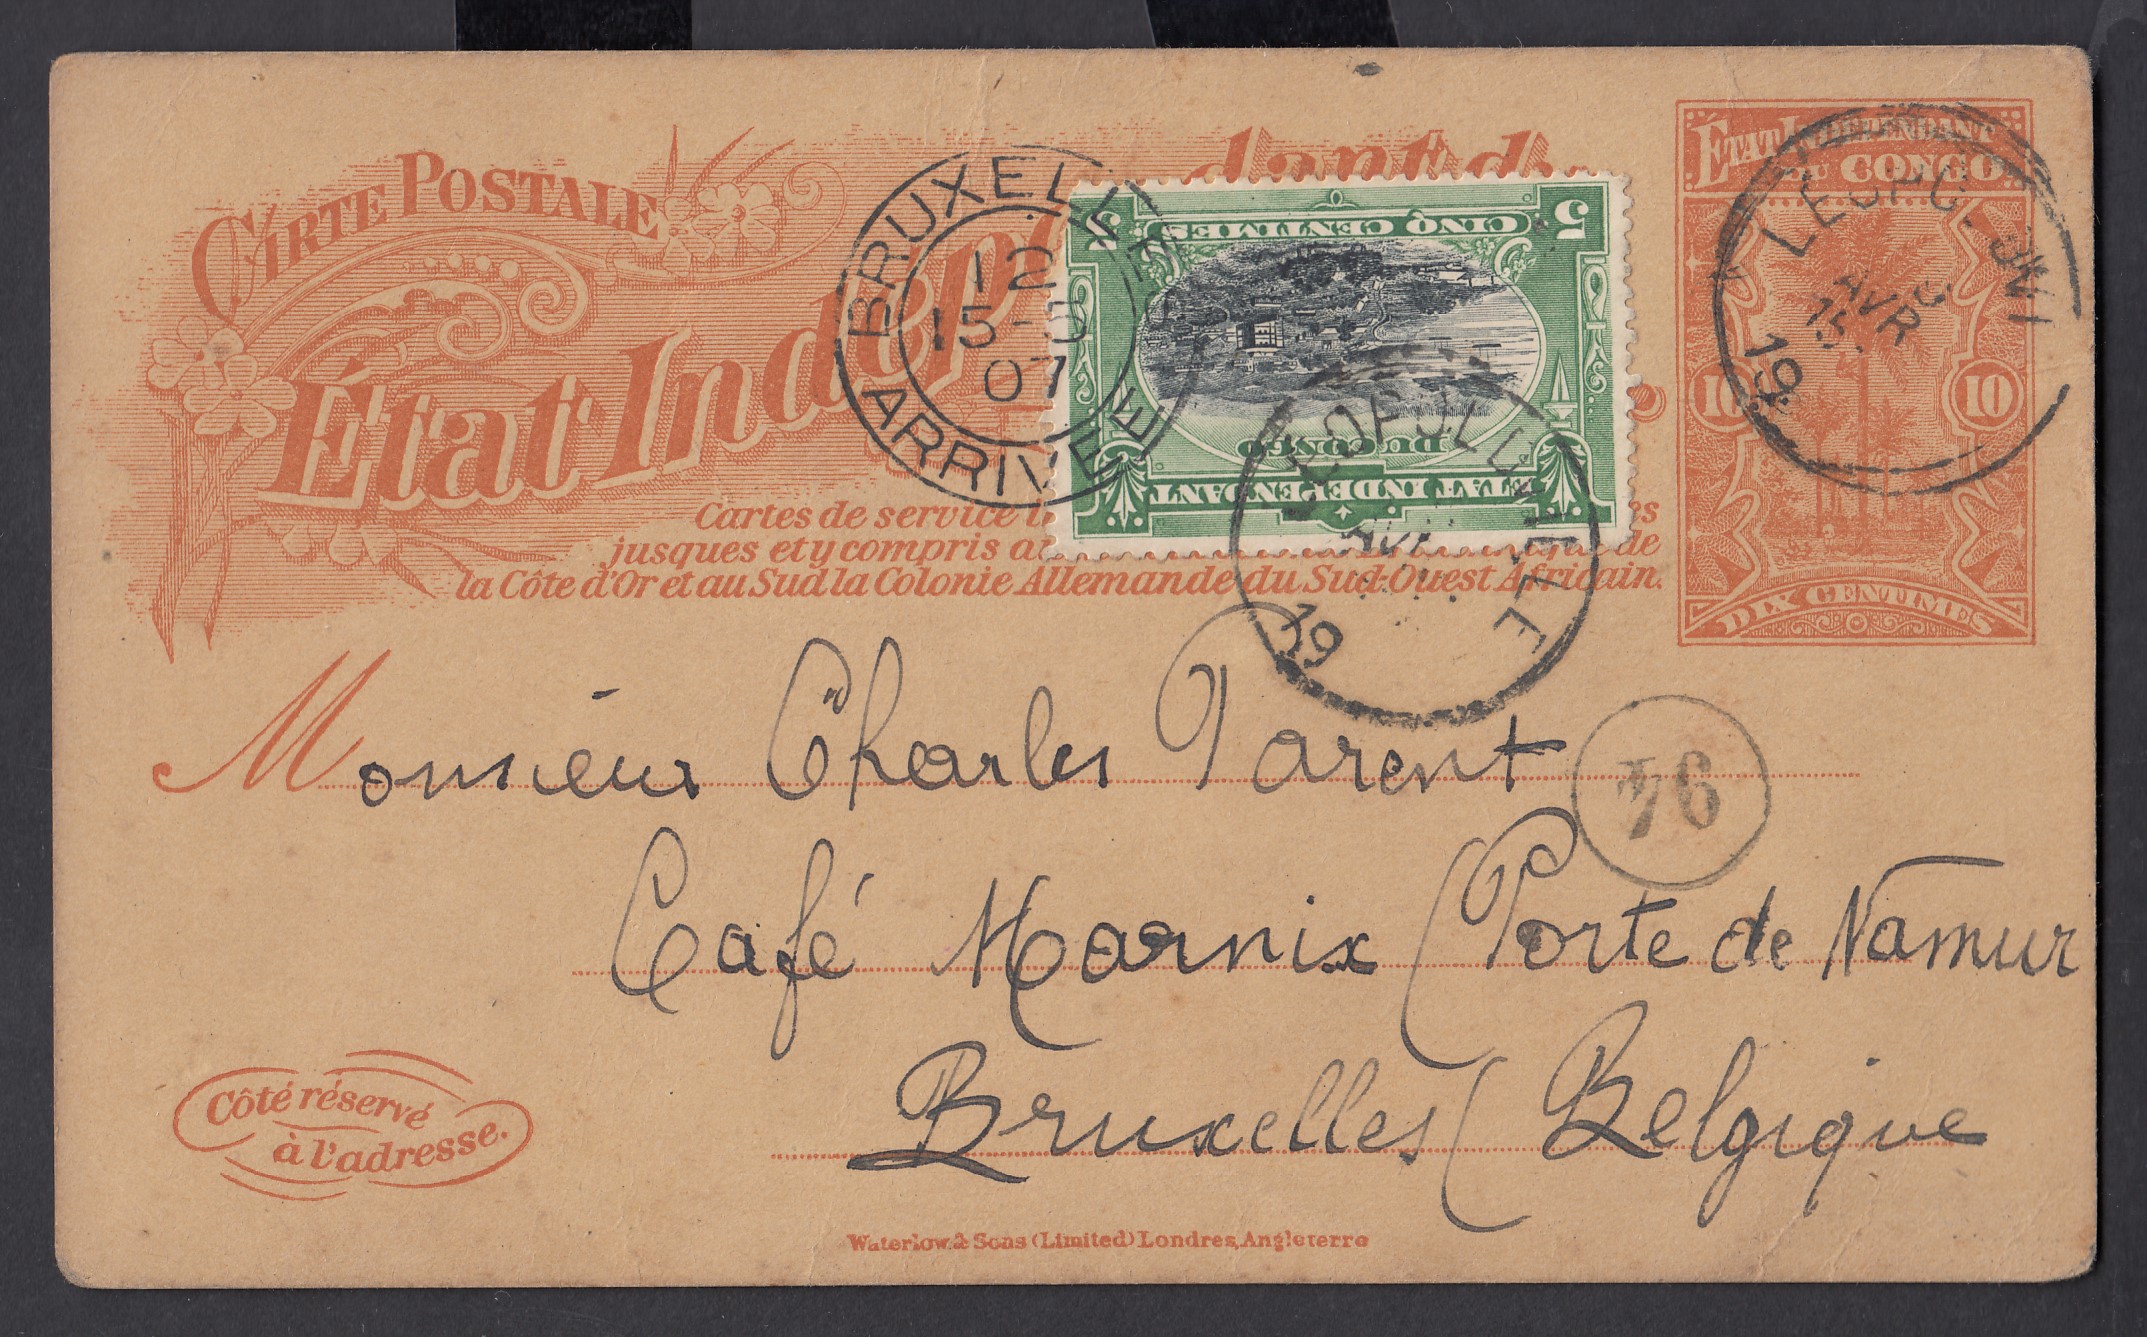 CARTE POSTALE
État Indép
dant d
Cartes de service
jusques et y compris de
la Côte d'Or et au Sud la Colonie Allemande du Sud-Ouest Africain.
BRUXELLES
12
15-5
07
ARRIVEE
5 CINQ CENTIMES 5
DU CONGO
ÉTAT INDÉPENDANT
LEOPOLDVILLE
AVR
19
ÉTAT INDÉPENDANT
DU CONGO
10 10
DIX CENTIMES
LEOPOLDVI
AVR
19
Monsieur Charles Parent
94
Café Marnix (Porte de Namur
Bruxelles (Belgique
Côté réservé
à l'adresse.
Waterlow & Sons (Limited) Londres, Angleterre